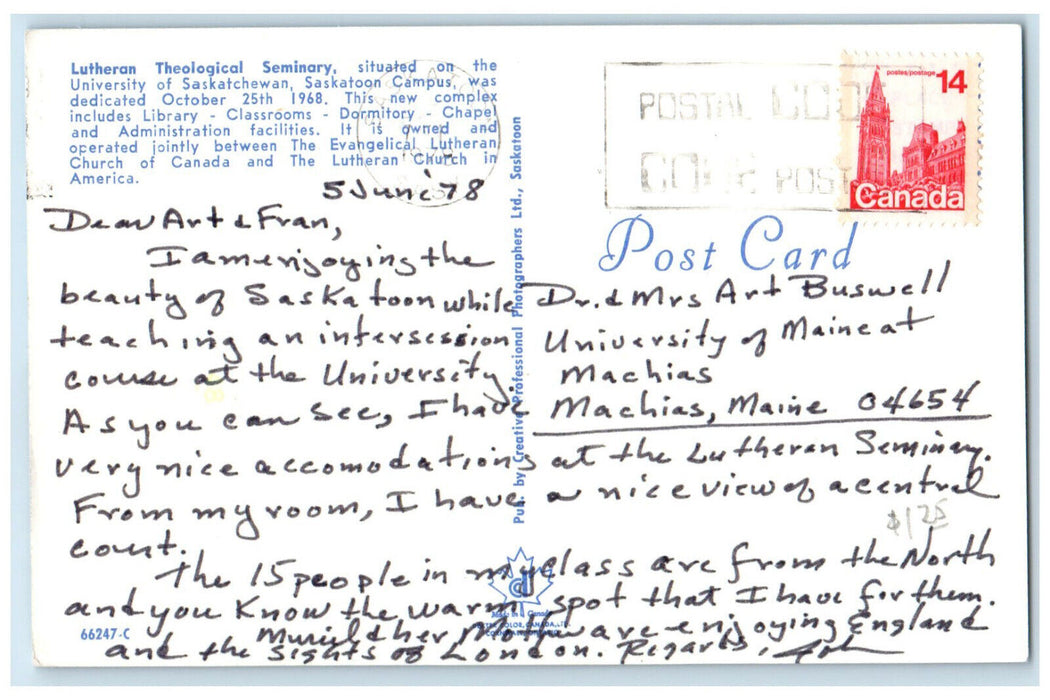 Lutheran Theological Seminary, situated on the
University of Saskatchewan, Saskatoon Campus, was
dedicated October 25th 1968. This new complex
includes Library - Classrooms - Dormitory - Chapel
and Administration facilities. It is owned and
operated jointly between The Evangelical Lutheran
Church of Canada and The Lutheran Church in
America.
POSTAL CODE
CODE POSTAL
postes/postage
14
Canada
Post Card
Pub. by Creative Professional Photographers Ltd., Saskatoon
5 June '78
Dear Art & Fran,
I am enjoying the
beauty of Saskatoon while
teaching an intersession
course at the University.
As you can see, I have
very nice accomodations at the Lutheran Seminary.
From my room, I have a nice view of a central
court.
The 15 people in my class are from the North
and you know the warm spot that I have for them.
Muriel & her Mom are enjoying England
and the sights of London. Regards,
Dr. & Mrs Art Buswell
University of Maine at
Machias
Machias, Maine 04654
$1.25
Made in Canada
66247-C